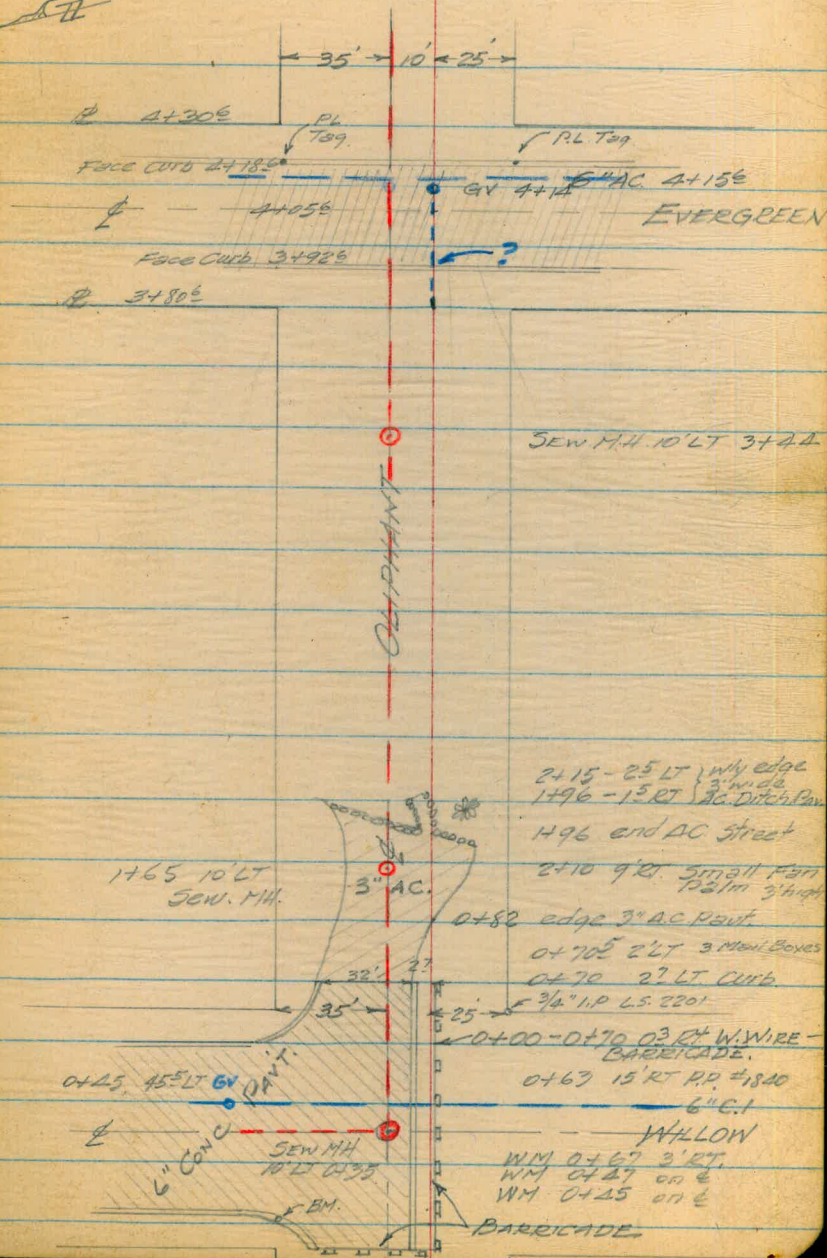 35' 10' 25'
PL 4+30⁶
PL Tag.
P.L. Tag.
Face Curb 4+18⁶
GV 4+14
6" AC. 4+15⁶
℄ 4+05⁶
EVERGREEN
Face Curb 3+92⁶
?
PL 3+80⁶
SEW M.H. 10' LT 3+44
OLIPHANT
2+15 - 2⁵ LT } W'ly edge
1+96 - 1⁵ RT } 3' wide AC. Ditch Pav.
1+96 end AC. Street
2+10 9' RT. Small Fan
Palm 3' high
1+65 10' LT
Sew. MH.
ST
3" AC.
0+82 edge 3" A.C Pavt.
0+70⁵ 2' LT 3 Mail Boxes
0+70 2⁷ LT. Curb
32' 2⁷
3/4" I.P L.S. 2201
35' 25'
0+00-0+70 0³ Rt W. WIRE -
BARRICADE.
0+63 15' RT P.P. #1840
0+45, 45⁵ LT GV
6" C.I
6" CONC PAV'T.
℄
WILLOW
SEW MH
10' LT 0+35
WM 0+67 3' RT.
WM 0+47 on ℄
WM 0+45 on ℄
BM.
BARRICADE